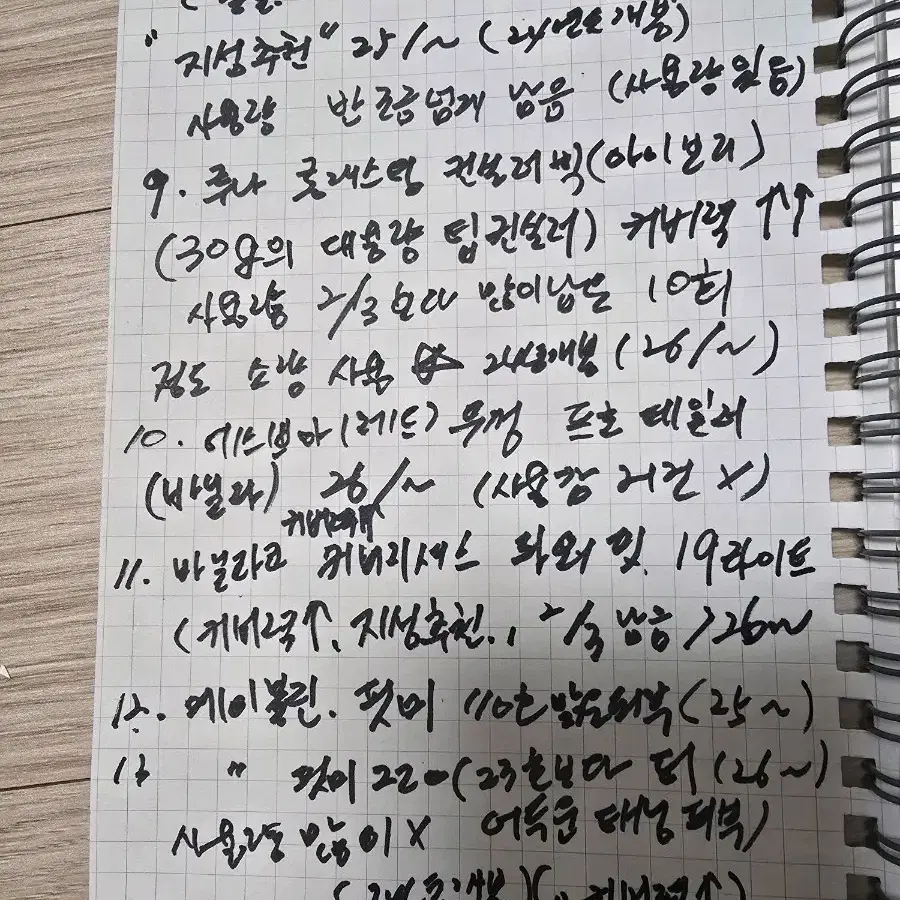 "지성추천" 25/~ (24년도개봉)
사용량 반 조금넘게 남음 (사용량 있음)
9. 루나 롱래스팅 컨실러 빅(아이보리)
(30g의 대용량 팁컨실러) 커버력 ↑↑
사용량 2/3 보다 많이남은 10회
정도 소량 사용 24년개봉 (26/~)
10. 에스쁘아(레드) 무정 프로 테일러
(바닐라) 26/~ (사용감 거진 X)
커버력↑
11. 바닐라코 커버리셔스 파워 핏 19라이트
(커버력↑, 지성추천, 2/3 남음 > 26~
12. 메이블린. 핏미 110호 밝은피부 (25~)
13 " 핏미 220 (23호보다 더 (26~)
사용감 많이 X 어두운 태닝 피부)
커버력↑)